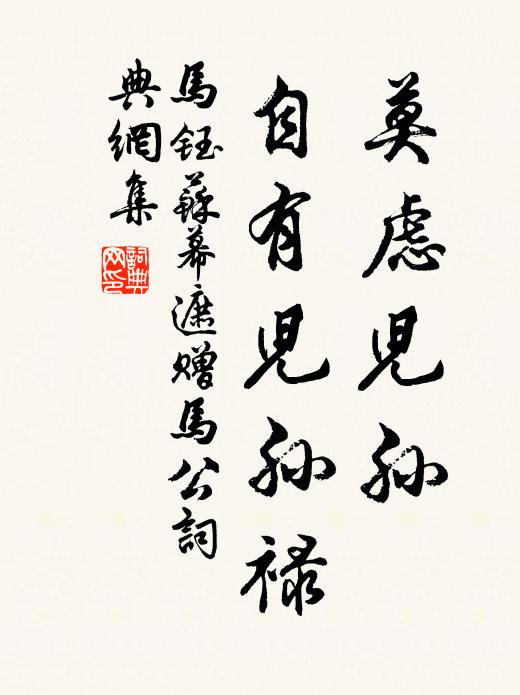 莫慮兒孫
自有兒孫祿
馬鈺蘇幕遮贈馬公詞
典網集
詞典網印